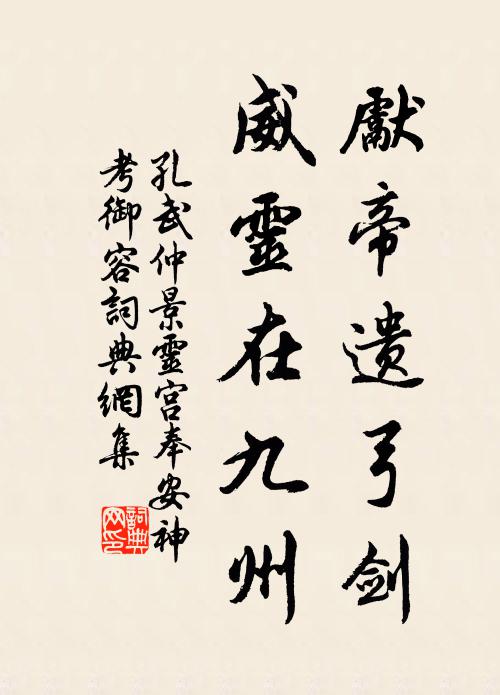 獻帝遺弓劍
威靈在九州
孔武仲景靈宮奉安神
考御容詞典網集
詞典網印